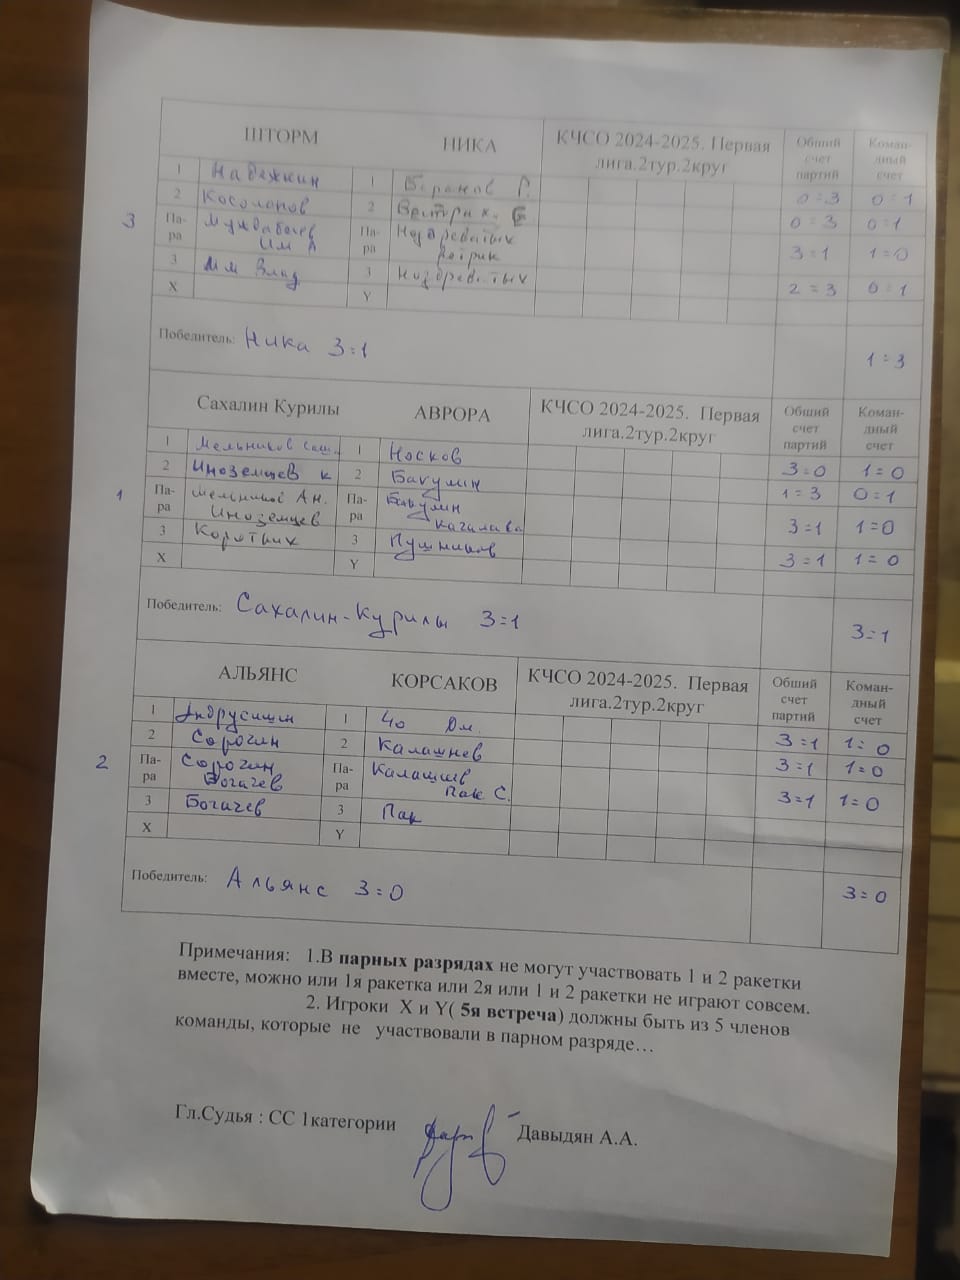 ШТОРМ НИКА КЧСО 2024-2025. Первая лига.2тур.2круг Общий счет партий Коман-дный счет
1 Надежкин 1 Г. 0=3 0=1
2 Косолапов 2 0=3 0=1
3 Па-ра Им А Па-ра Ноздреватых 3=1 1=0
3 Им Влад 3 Ноздреватых 2=3 0=1
X Y
Победитель: Ника 3=1 1=3
Сахалин Курилы АВРОРА КЧСО 2024-2025. Первая лига.2тур.2круг Общий счет партий Коман-дный счет
1 Мельников Саш. 1 Носков 3=0 1=0
2 Иноземцев К 2 Бакулин 1=3 0=1
1 Па-ра Мельников Ан. Иноземцев Па-ра Бакулин 3=1 1=0
3 Коротких 3 3=1 1=0
X Y
Победитель: Сахалин-Курилы 3=1 3=1
АЛЬЯНС КОРСАКОВ КЧСО 2024-2025. Первая лига.2тур.2круг Общий счет партий Коман-дный счет
1 Андрусишин 1 Чо Дм. 3=1 1=0
2 Сорочин 2 Калашнев 3=1 1=0
2 Па-ра Сорочин Богачев Па-ра Калашнев Пак С. 3=1 1=0
3 Богачев 3 Пак
X Y
Победитель: Альянс 3=0 3=0
Примечания: 1.В парных разрядах не могут участвовать 1 и 2 ракетки
вместе, можно или 1я ракетка или 2я или 1 и 2 ракетки не играют совсем.
2. Игроки X и Y( 5я встреча) должны быть из 5 членов
команды, которые не участвовали в парном разряде…
Гл.Судья : СС 1категории Давыдян А.А.